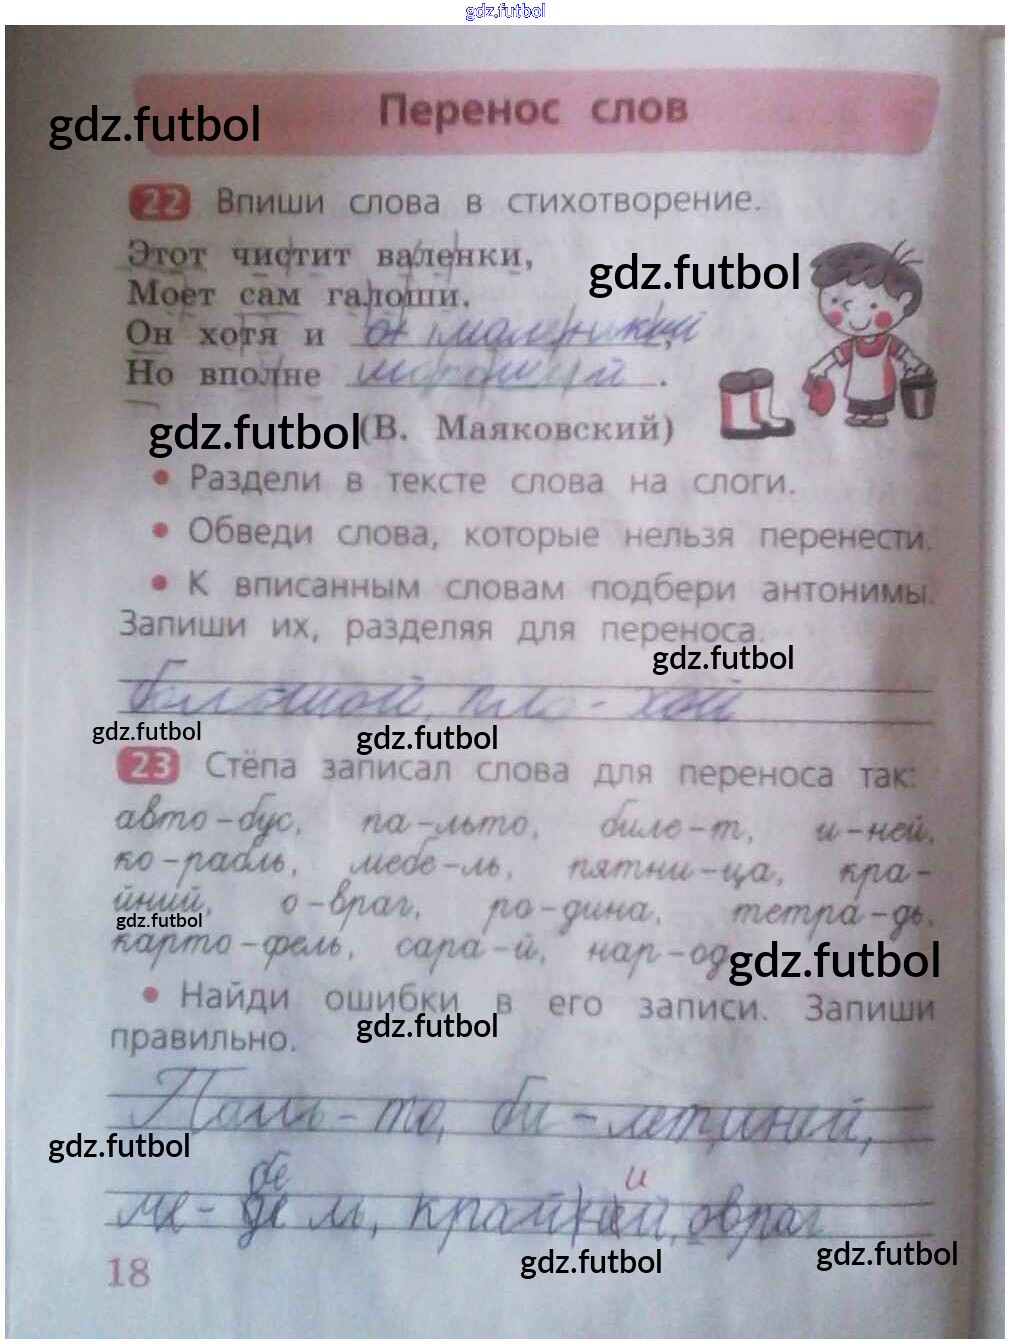 gdz.futbol
Перенос слов
gdz.futbol
22 Впиши слова в стихотворение.
Этот чистит валенки,
gdz.futbol
Моет сам галоши.
Он хотя и маленький,
Но вполне хороший.
gdz.futbol
(В. Маяковский)
• Раздели в тексте слова на слоги.
• Обведи слова, которые нельзя перенести.
• К вписанным словам подбери антонимы.
Запиши их, разделяя для переноса.
gdz.futbol
большой, пло-хой
gdz.futbol gdz.futbol
23 Стёпа записал слова для переноса так:
авто-бус, па-льто, биле-т, и-ней,
ко-рабль, мебе-ль, пятни-ца, кра-
йний, о-враг, ро-дина, тетра-дь,
gdz.futbol
карто-фель, сара-й, нар-од
gdz.futbol
• Найди ошибки в его записи. Запиши
gdz.futbol
правильно.
Паль-то, би-лет, иней,
gdz.futbol
бе и
ме-ль, край, овраг
gdz.futbol gdz.futbol
18